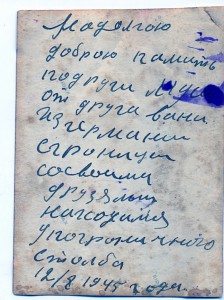 Надолгою
доброю память
подруги
от друга вани
из германии
со своими
друзями
находимся
у пограничного
столба
12/8 1945 года.